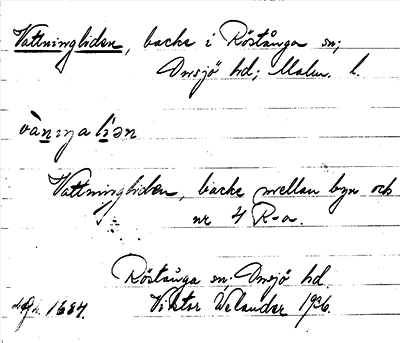 Vattningliden, backe i Röstånga sn;
Onsjö hd; Malm. l.
vàn̲ıŋali̲ən
Vattningliden, backe mellan byn och
nr 4 R-a.
Röstånga sn; Onsjö hd.
1684. Viktor Welander 1936.